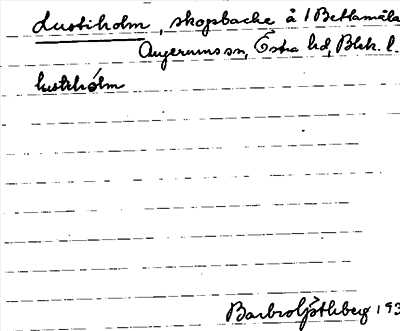 Lustiholm, skogsbacke å 1 Betlamåla
Augerums sn, Östra hd, Blek. l.
lustihólm
Barbro 193